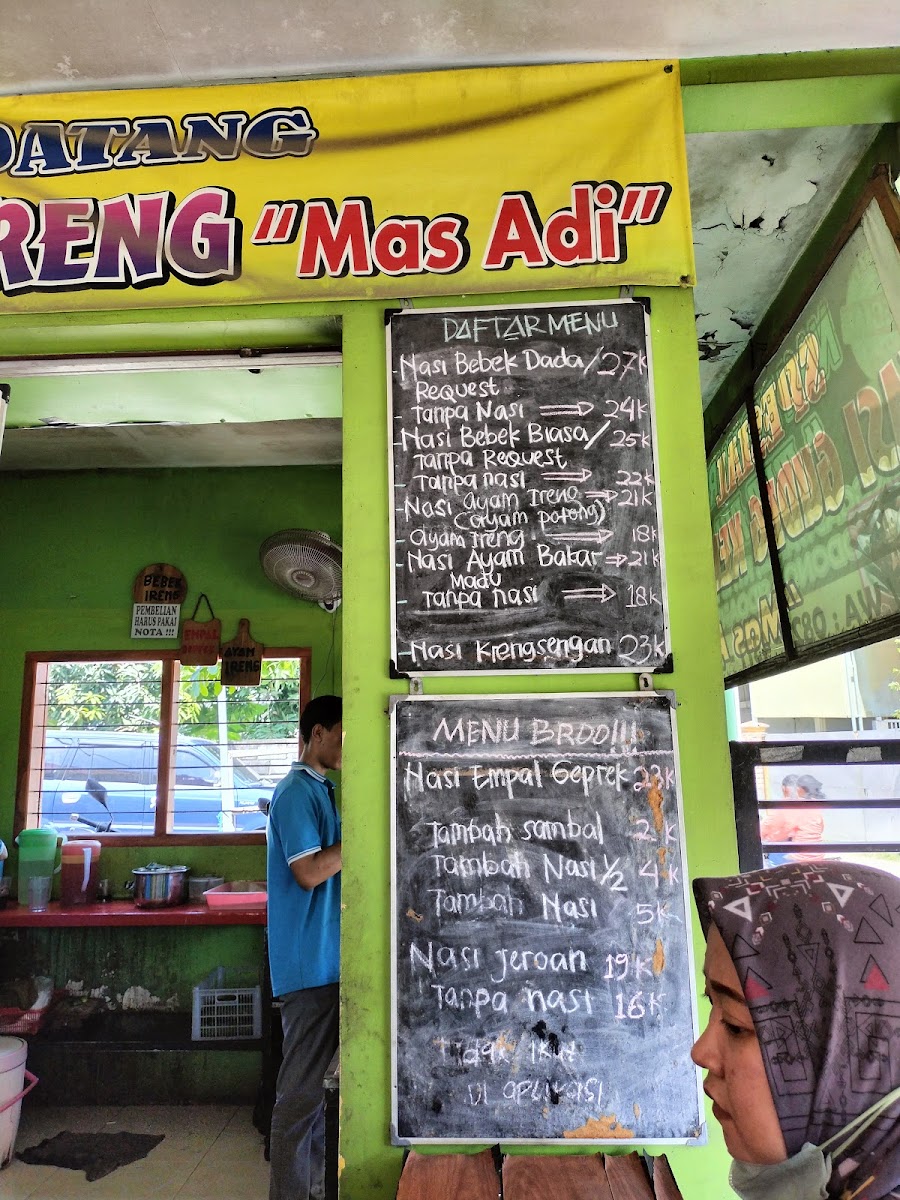 DATANG
RENG "Mas Adi"
DAFTAR MENU
- Nasi Bebek Dada/ 27K
Request
- Tanpa Nasi ⇒ 24K
- Nasi Bebek Biasa/ 25K
Tanpa Request
- Tanpa nasi ⇒ 22K
- Nasi ayam Ireng ⇒ 21K
(ayam potong)
- ayam Ireng ⇒ 18K
- Nasi Ayam Bakar ⇒ 21K
Madu
- Tanpa nasi ⇒ 18K
- Nasi Krengsengan 23K
MENU BROO!!!
Nasi Empal Geprek 23K
Tambah sambal 2K
Tambah Nasi 1/2 4K
Tambah Nasi 5K
Nasi jeroan 19K
Tanpa nasi 16K
Tidak Ikut
Di aplikasi
BEBEK
IRENG
PEMBELIAN
HARUS PAKAI
NOTA !!!
EMPAL
AYAM
IRENG